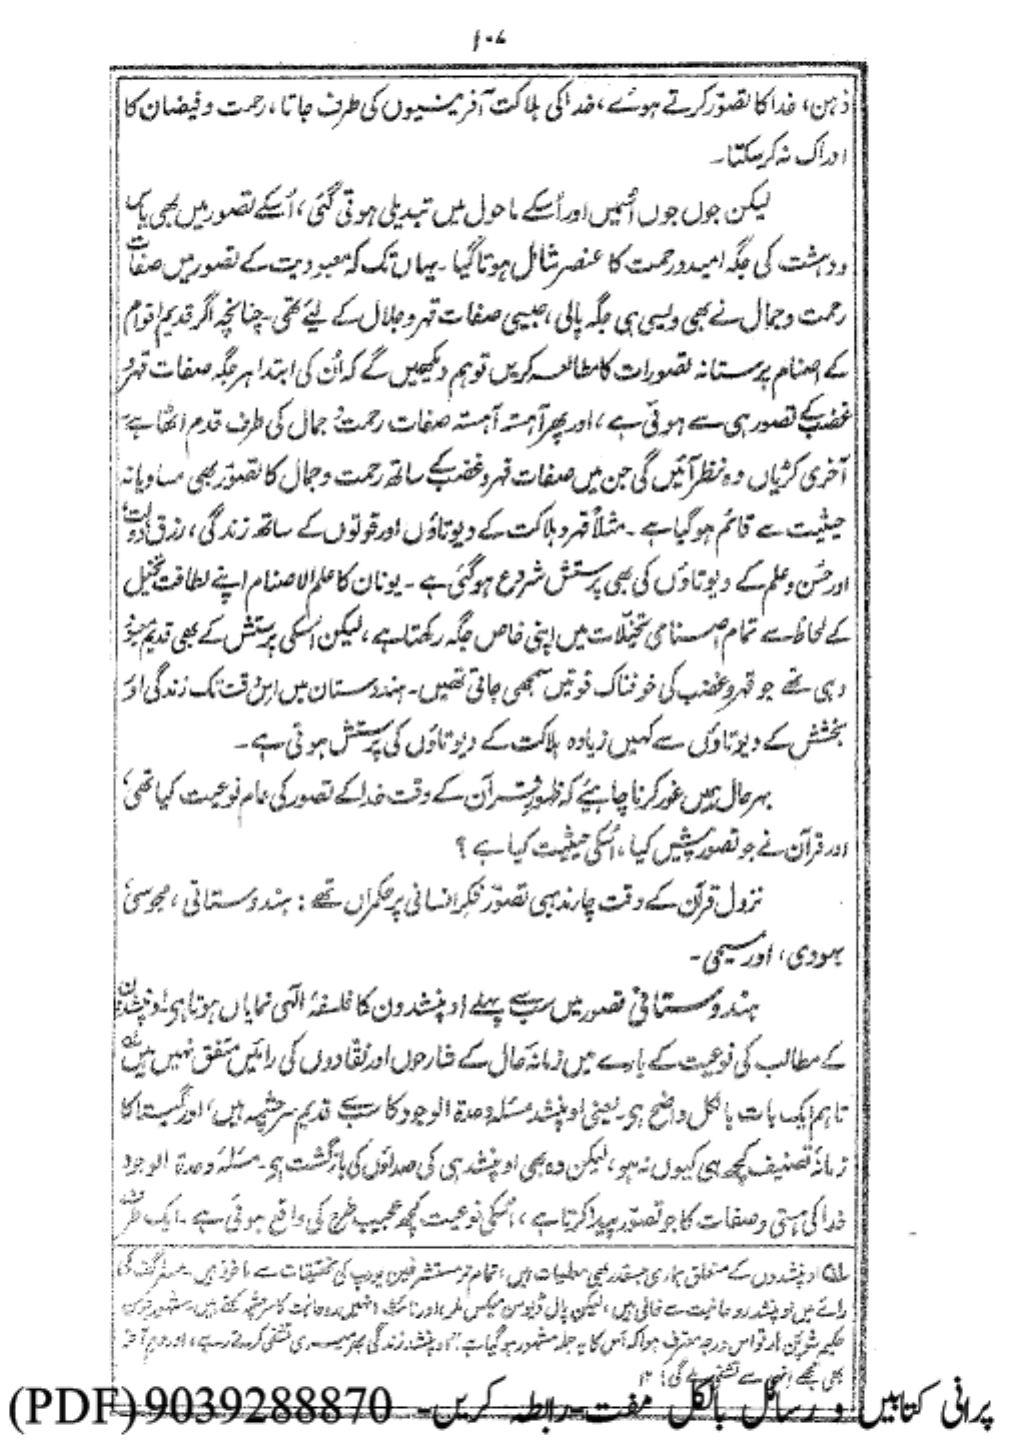 ۱۰۷
ذہن، خدا کا تصوّر کرتے ہوئے، خدا کی ہلاکت آفرینیوں کی طرف جاتا، رحمت و فیضان کا
ادراک نہ کرسکتا۔
لیکن جوں جوں اُسمیں اور اُسکے ماحول میں تبدیلی ہوتی گئی، اُسکے تصور میں بھی یاس
و دہشت کی جگہ امید و رحمت کا عنصر شامل ہوتا گیا۔ یہاں تک کہ معبودیت کے تصور میں صفات
رحمت و جمال نے بھی ویسی ہی جگہ پالی، جیسی صفات قہر و جلال کے لیئے تھی۔ چنانچہ اگر قدیم اقوام
کے اصنام پرستانہ تصورات کا مطالعہ کریں تو ہم دیکھیں گے کہ اُن کی ابتدا ہر جگہ صفات قہر و
غضب کے تصور ہی سے ہوئی ہے، اور پھر آہستہ آہستہ صفات رحمت و جمال کی طرف قدم اٹھا ہے۔
آخری کڑیاں وہ نظر آئیں گی جن میں صفات قہر و غضب کے ساتھ رحمت و جمال کا تصوّر بھی مساویانہ
حیثیت سے قائم ہوگیا ہے۔ مثلاً قہر و ہلاکت کے دیوتاؤں اور قوتوں کے ساتھ زندگی، رزق، دولت،
اور حُسن و علم کے دیوتاؤں کی بھی پرستش شروع ہوگئی ہے۔ یونان کا علم الاصنام اپنے لطافت تخیل
کے لحاظ سے تمام اصنامی تخیّلات میں اپنی خاص جگہ رکھتا ہے، لیکن اُسکی پرستش کے بھی قدیم معبود
وہی تھے جو قہر و غضب کی خوفناک قوتیں سمجھی جاتی تھیں۔ ہندوستان میں اس وقت تک زندگی اور
بخشش کے دیوتاؤں سے کہیں زیادہ ہلاکت کے دیوتاؤں کی پرستش ہوتی ہے۔
بہرحال ہمیں غور کرنا چاہیئے کہ ظہور قرآن کے وقت خدا کے تصور کی عام نوعیت کیا تھی؟
اور قرآن نے جو تصوّر پیش کیا، اُسکی حیثیت کیا ہے؟
نزول قرآن کے وقت چار مذہبی تصوّر فکر انسانی پر حکمراں تھے: ہندوستانی، مجوسی،
یہودی، اور مسیحی۔
ہندوستانی تصور میں سب سے پہلے اوپنشدوں کا فلسفۂ الٰہی نمایاں ہوتا ہی۔ اوپنشدوں
کے مطالب کی نوعیت کے بارے میں زمانۂ حال کے شارحوں اور نقادوں کی رائیں متفق نہیں ہیں
تاہم ایک بات بالکل واضح ہی۔ یعنی اوپنشد مسئلہ وحدۃ الوجود کا سب سے قدیم سرچشمہ ہیں، اور گیتا کا
زمانۂ تصنیف کچھ ہی کیوں نہ ہو، لیکن وہ بھی اوپنشد ہی کی صداؤں کی بازگشت ہی۔ مسئلۂ وحدۃ الوجود
خدا کی ہستی و صفات کا جو تصوّر پیدا کرتا ہے، اُسکی نوعیت کچھ عجیب طرح کی واقع ہوئی ہے۔ ایک طرف
اوپنشدوں کے متعلق ہماری جسقدر بھی معلومات ہیں، تمام تر مستشرقین یورپ کی تحقیقات سے ماخوذ ہیں۔ مسٹر گف کی
رائے میں اوپنشد روحانیت سے خالی ہیں، لیکن پال ڈیوسن میکس ملر، اور انہیں روحانیت کا سرچشمہ کہتے ہیں۔ مشہور جرمن
حکیم شوپن ہار تو اس درجہ معترف ہوا کہ اس کا یہ جملہ مشہور ہوگیا ہے: "اوپنشد زندگی بھر میری تشفی کرتے رہے، اور دم آخر
بھی مجھے انہی سے تشفی ملے گی"
پرانی کتابیں و رسائل بالکل مفت۔ رابطہ کریں۔ 9039288870 (PDF)